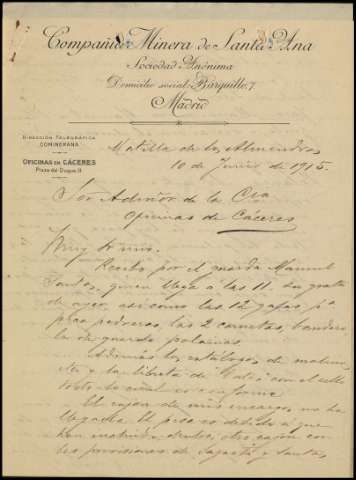 Compañía Minera de Santa Ana
Sociedad Anónima
Domicilio social: Barquillo, 7
Madrid
DIRECCIÓN TELEGRÁFICA
COMINERANA
OFICINAS EN CÁCERES
Matilla de los Almendros
10 de Junio de 1915.
Sor Admor de la Cia
Oficinas de Cáceres
Muy Sr mio:
Recibo por el guarda Manuel
Santos, quien llega á las 11, su grata
de ayer, así como las 12 gafas pa
pica pedreros, las 2 carretas, bandero
la de guarda
Además los catálogos de
y la libreta de con el sello
todo lo cual es conforme.
El cajón de mis encargos no ha
llegado. El peso es debido á que
han incluido dentro, otro cajón con
las provisiones de Sagasta y Santos,